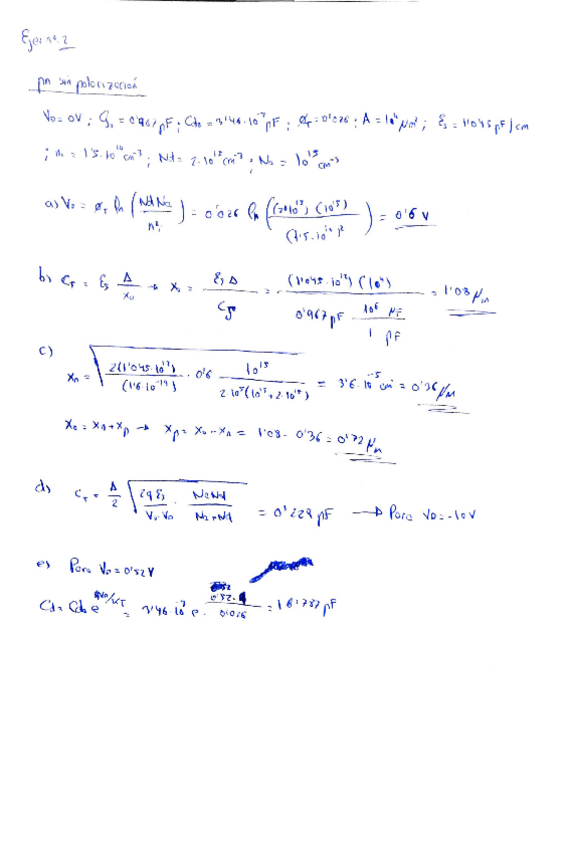 Ejercicio. 2
pn sin polarización
V₀ = 0V ; Cj₀ = 0'967 pF ; Cd₀ = 3'46·10⁻⁷ pF ; ø_T = 0'026 ; A = 10⁴ μm² ; ξs = 1'045 pF/cm
; nᵢ = 1'5·10¹⁰ cm⁻³ ; Nd = 2·10¹⁵ cm⁻³ ; Na = 10¹⁵ cm⁻³
a) V₀ = ø_T ln (Nd Na / n²) = 0'026 ln ((2·10¹⁵)(10¹⁵) / (1'5·10¹⁰)²) = 0'6 V
b) C_T = ξs A/x₀ → x₀ = ξs A / Cj₀ = (1'045·10¹²)(10⁴) / 0'967 pF · 10⁶ μF / 1 pF = 1'08 μm
c) xn = √(2(1'045·10¹²) / (1'6·10⁻¹⁹) · 0'6 10¹⁵ / 2·10¹⁵(10¹⁵+2·10¹⁵)) = 3'6·10⁻⁵ cm = 0'36 μm
x₀ = xn+xp → xp = x₀ - xn = 1'08 - 0'36 = 0'72 μm
d) C_T = A/2 √(2q ξs / V₀-V_D · Na Nd / Na+Nd) = 0'229 pF → Para V_D = -10V
e) Para V_D = 0'52 V
Cd = Cd₀ e^(qV_D/KT) = 3'46·10⁻⁷ e · 0'52 / 0'026 = 161'737 pF